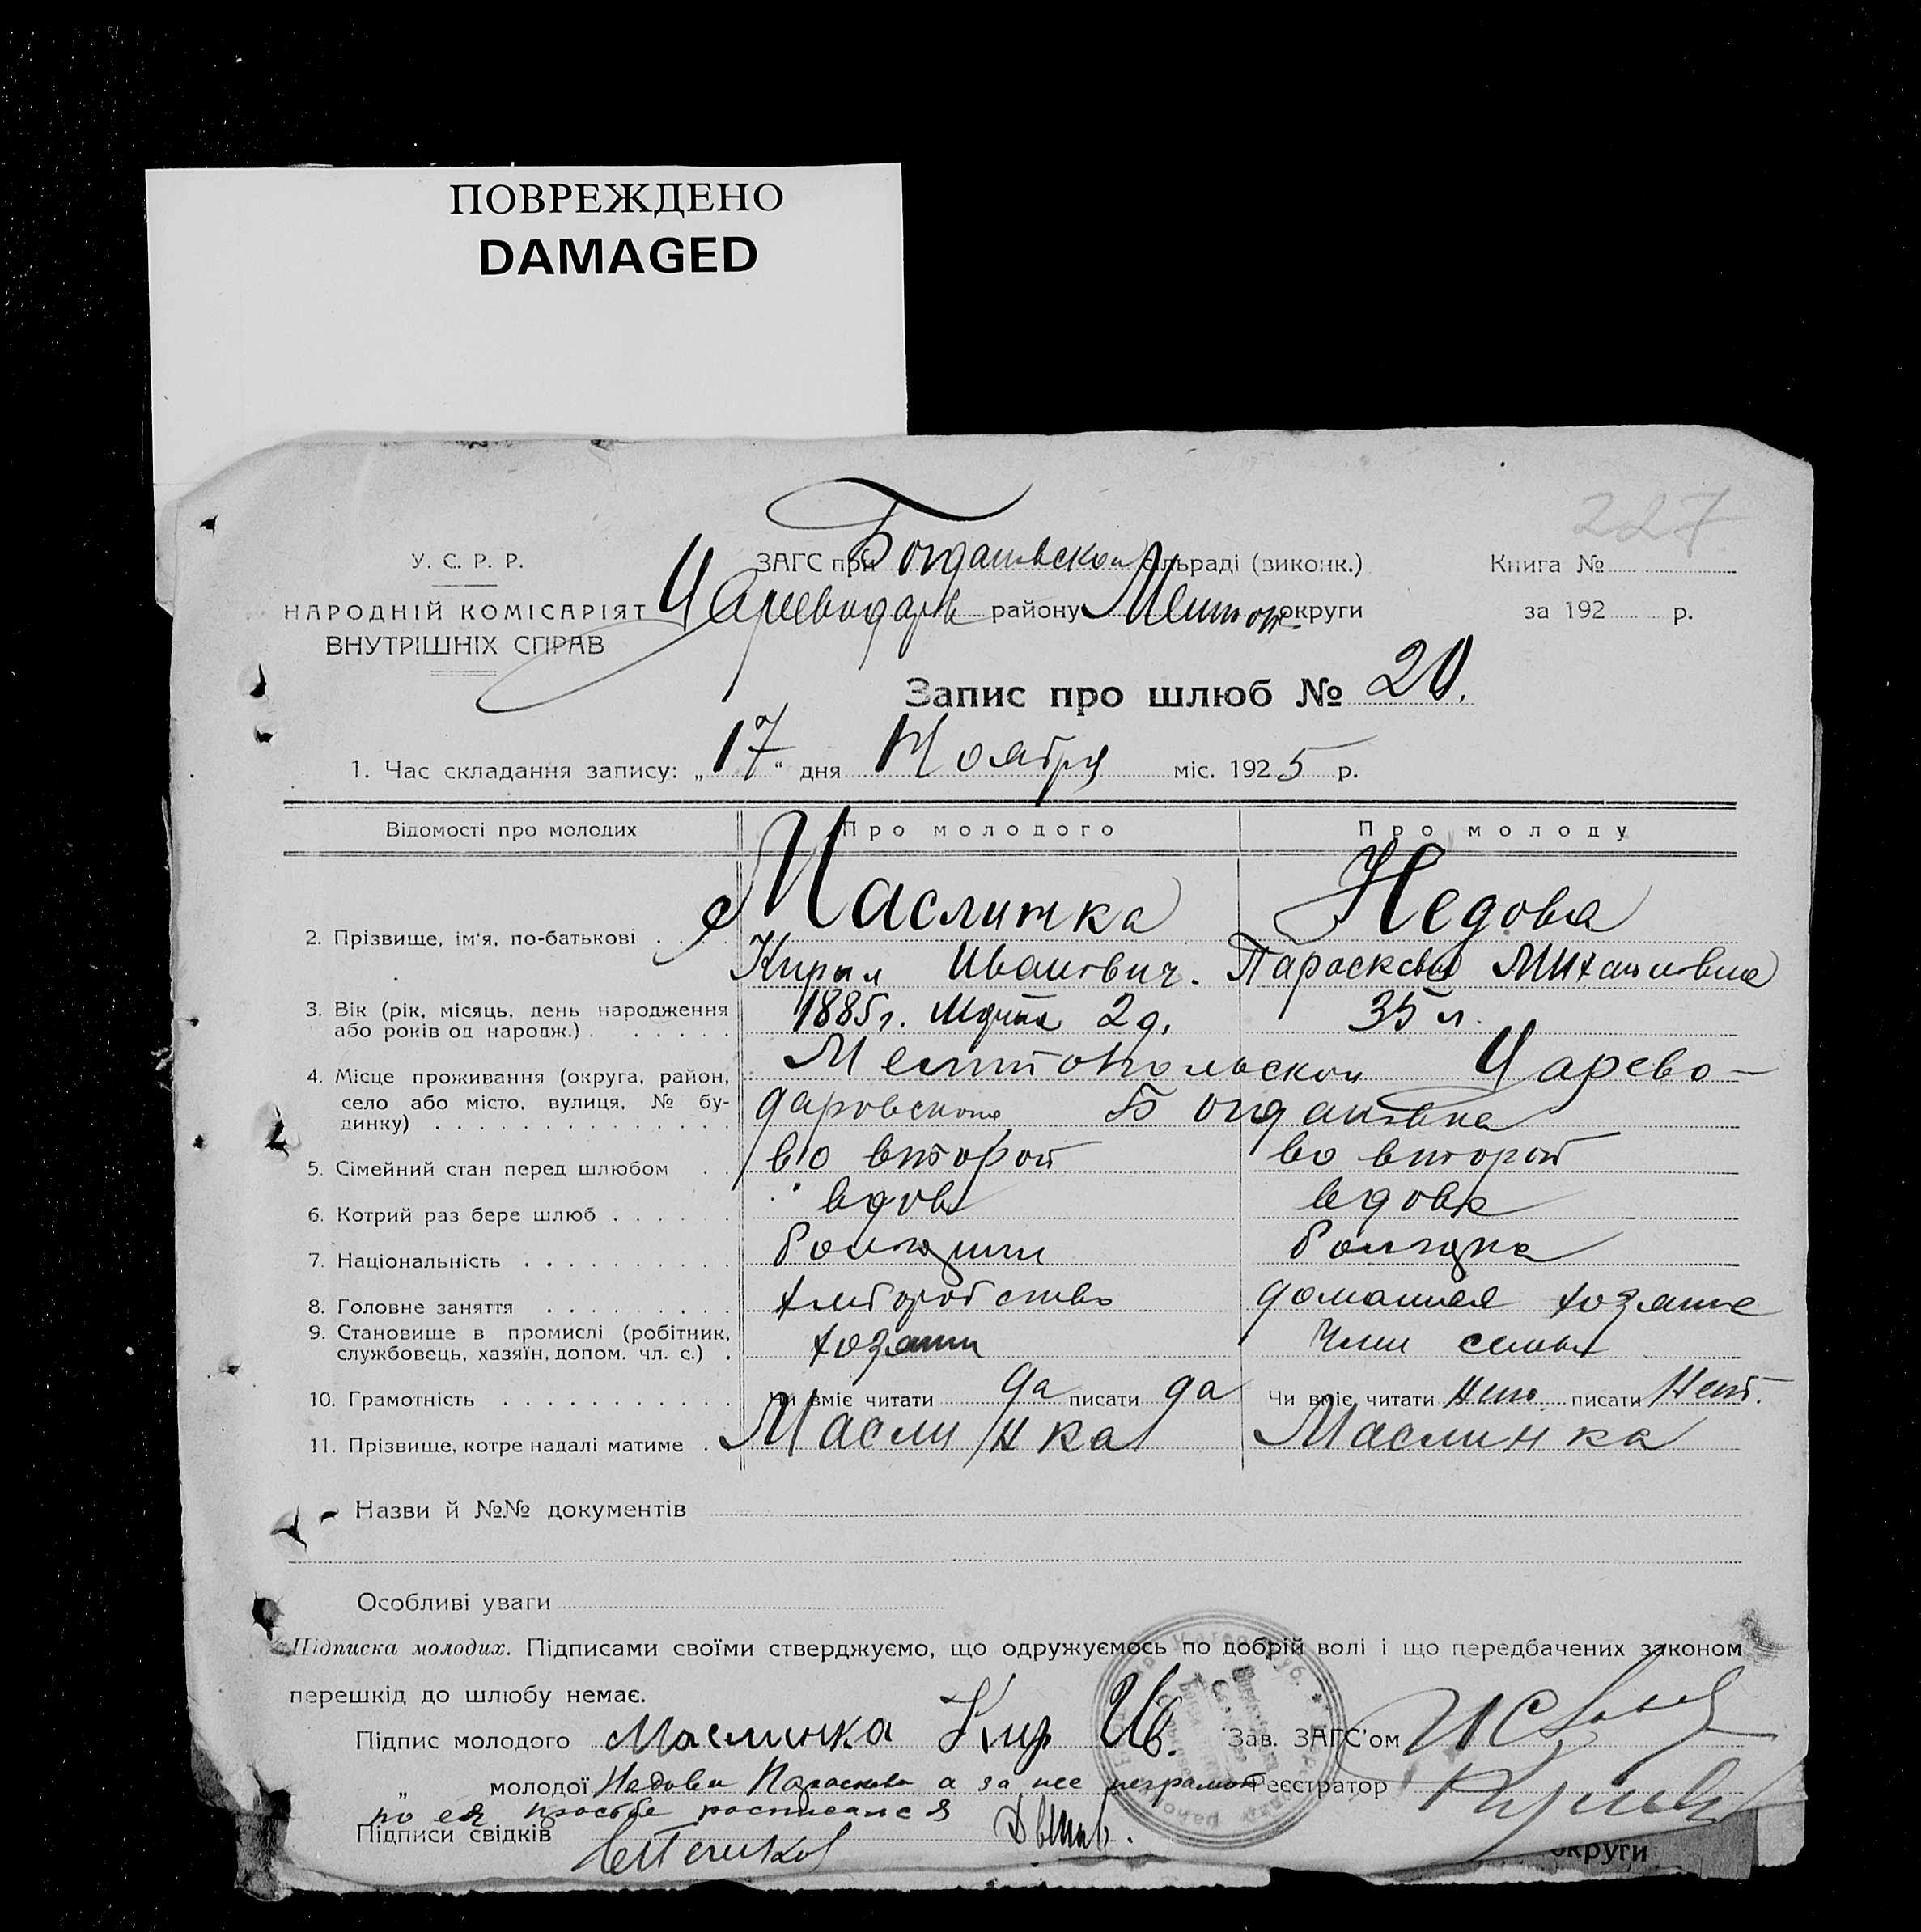 ПОВРЕЖДЕНО
DAMAGED
227
У. С. Р. Р.
НАРОДНІЙ КОМІСАРІЯТ
ВНУТРІШНІХ СПРАВ
ЗАГС при Богдановской сільраді (виконк.)
Цареводар района району Мелитоп. округи
Книга №
за 192 р.
Запис про шлюб № 20.
1. Час складання запису: „17“ дня Ноября міс. 1925 р.
Відомості про молодих Про молодого Про молоду
2. Прізвище, ім'я, по-батькові . . . . Маслинка Недова
Кирил Иванович. Парасковия Михайловна
3. Вік (рік, місяць, день народження
або років од народж.) . . . . . . 1885 г. Марта 2 д. 35 л.
4. Місце проживання (округа, район,
село або місто, вулиця, № бу-
динку) . . . . . . . . . . . . . .
Мелитопольской Царево-
даровского Богдановка
5. Сімейний стан перед шлюбом . . во второй во второй
6. Котрий раз бере шлюб . . . . . . вдов вдова
7. Національність . . . . . . . . . . болгарин болгарка
8. Головне заняття . . . . . . . . . хлеборобство домашняя хозяйка
9. Становище в промислі (робітник,
службовець, хазяїн, допом. чл. с.) . хозяин член семьи
10. Грамотність . . . . . . . . . . . Чи вміє читати да писати да Чи вміє читати нет. писати Нет.
11. Прізвище, котре надалі матиме . Маслинка Маслинка
Назви й №№ документів
Особливі уваги
Підписка молодих. Підписами своїми стверджуємо, що одружуємось по добрій волі і що передбачених законом
перешкід до шлюбу немає.
Підпис молодого Маслинка Кир Ив. Зав. ЗАГС'ом
„ молодої Недова Парасковия а за нее неграмот Реєстратор
по ея просьбе расписался
Підписи свідків
округи